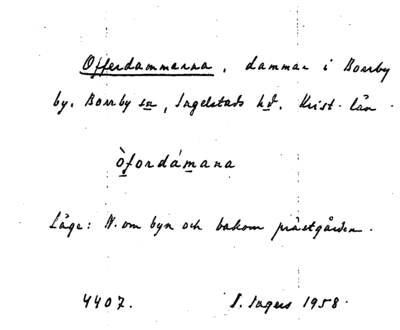 Offerdammarna, dammar i Borrby
by, Borrby sn, Ingelstads hd. Krist. län
òfordámana
Läge: N. om byn och bakom prästgården.
4407. S. Ingers 1958.